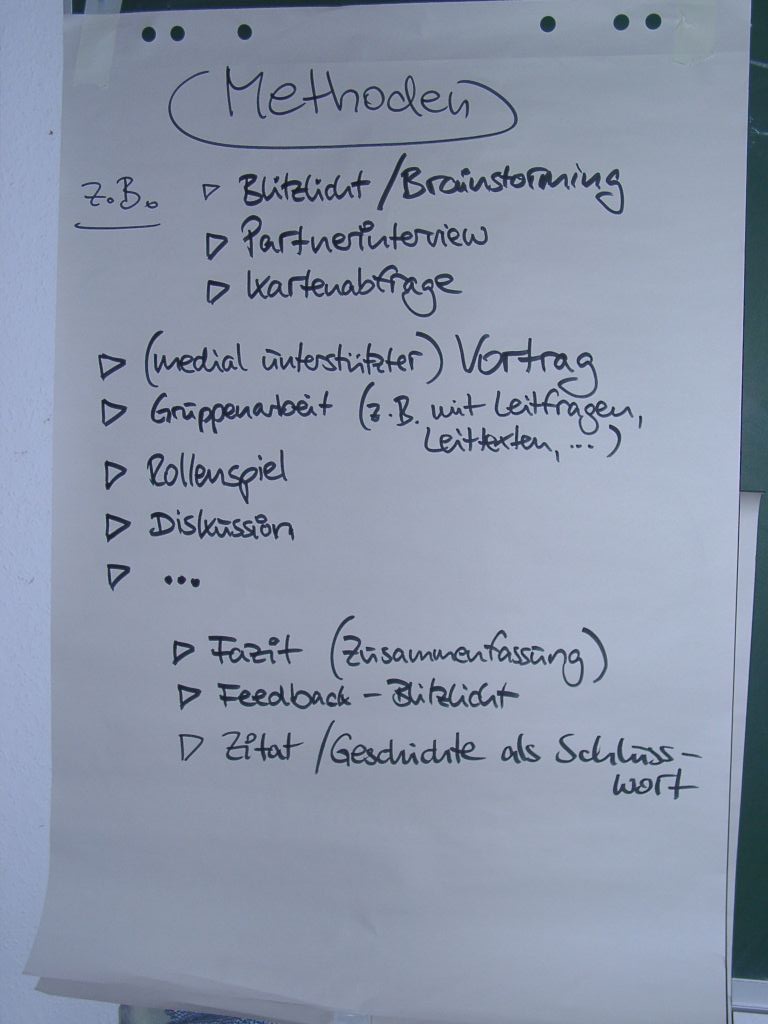 Methoden
z.B. ▷ Blitzlicht / Brainstorming
▷ Partnerinterview
▷ Kartenabfrage
▷ (medial unterstützter) Vortrag
▷ Gruppenarbeit (z.B. mit Leitfragen,
Leittexten, ...)
▷ Rollenspiel
▷ Diskussion
▷ ...
▷ Fazit (Zusammenfassung)
▷ Feedback - Blitzlicht
▷ Zitat / Geschichte als Schluss-
wort